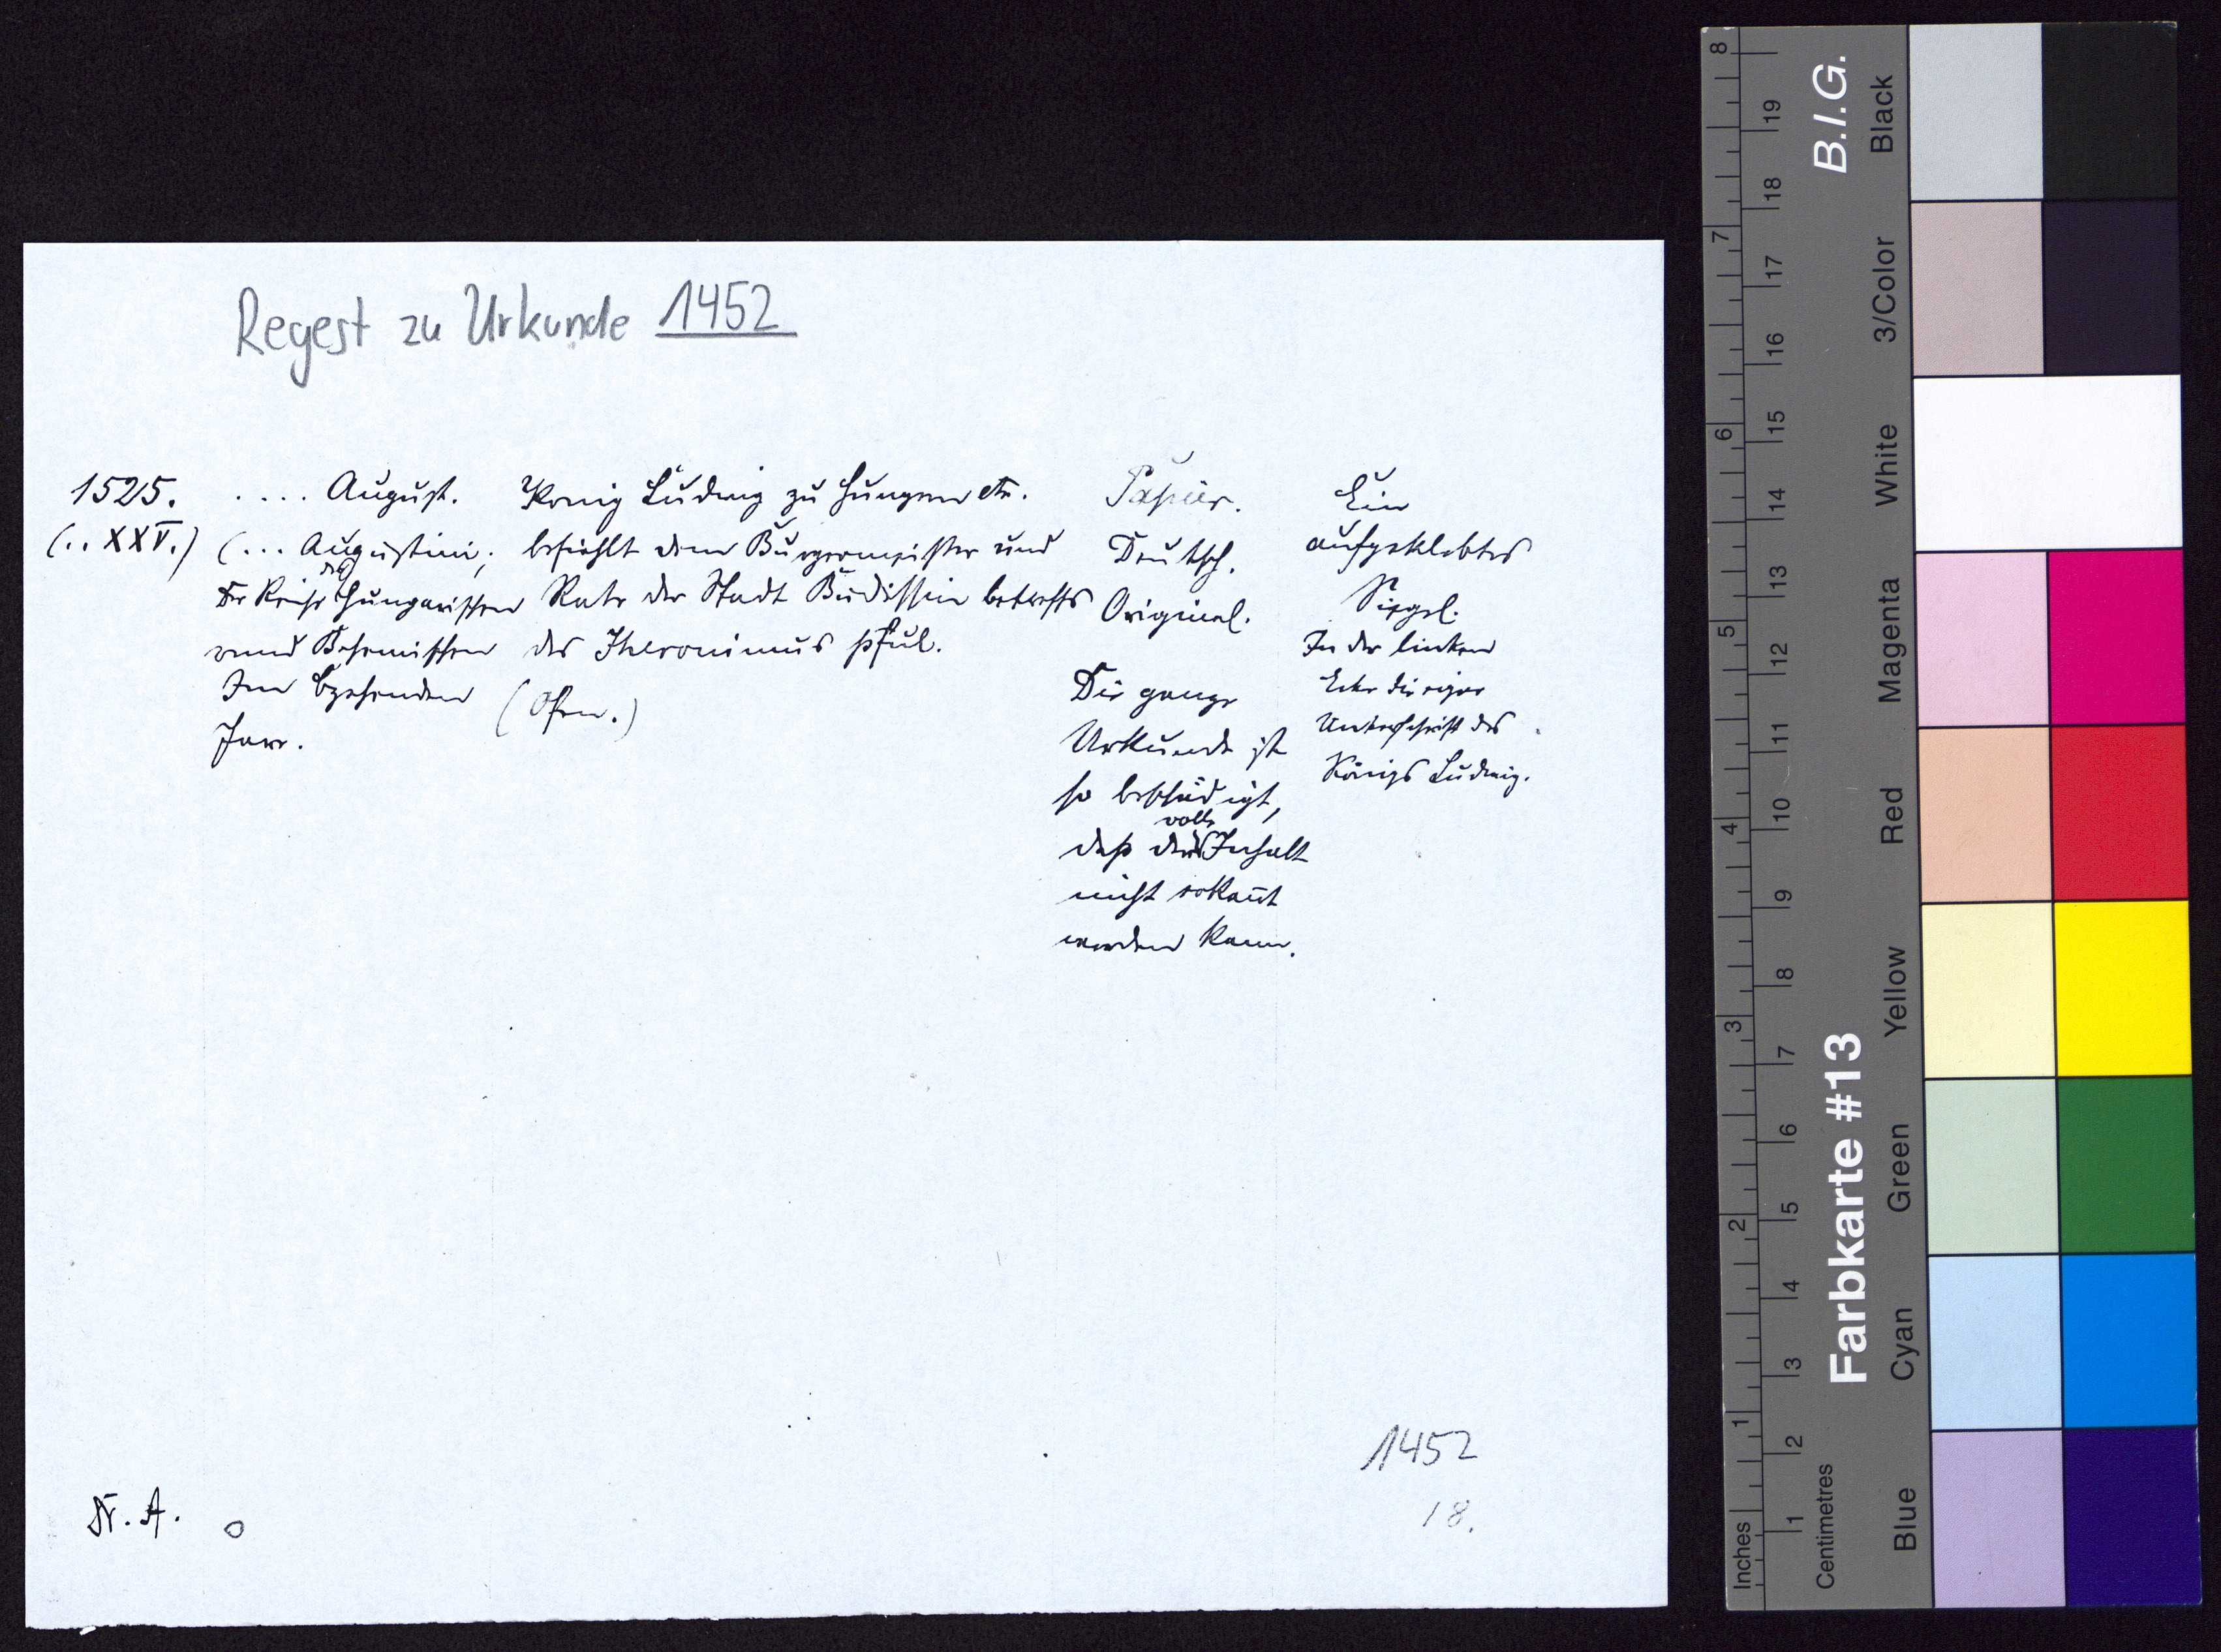 Regest zu Urkunde 1452
1525.
(.. XXV.)
.... August.
(... Augustini,
Der Reiche des Hungarischen
vnnd Behemischen
Im Czehenden
Jare.
König Ludwig zu Hungern etc.
befiehlt dem Burgermeister und
Rate der Stadt Budissin betreffs
des Iheronimus pful.
(Ofen.)
Papier.
Deutsch.
Original.
Die ganze
Urkunde ist
so beschädigt,
daß der volle Inhalt
nicht erkannt
werden kann.
Ein
aufgeklebtes
Siegel.
In der linken
Ecke die eigne
Unterschrift des
Königs Ludwig.
1452
18.
Dr. A.
Inches
1
2
3
4
5
6
7
8
Centimetres
1
2
3
4
5
6
7
8
9
10
11
12
13
14
15
16
17
18
19
Farbkarte #13
B.I.G.
Blue
Cyan
Green
Yellow
Red
Magenta
White
3/Color
Black